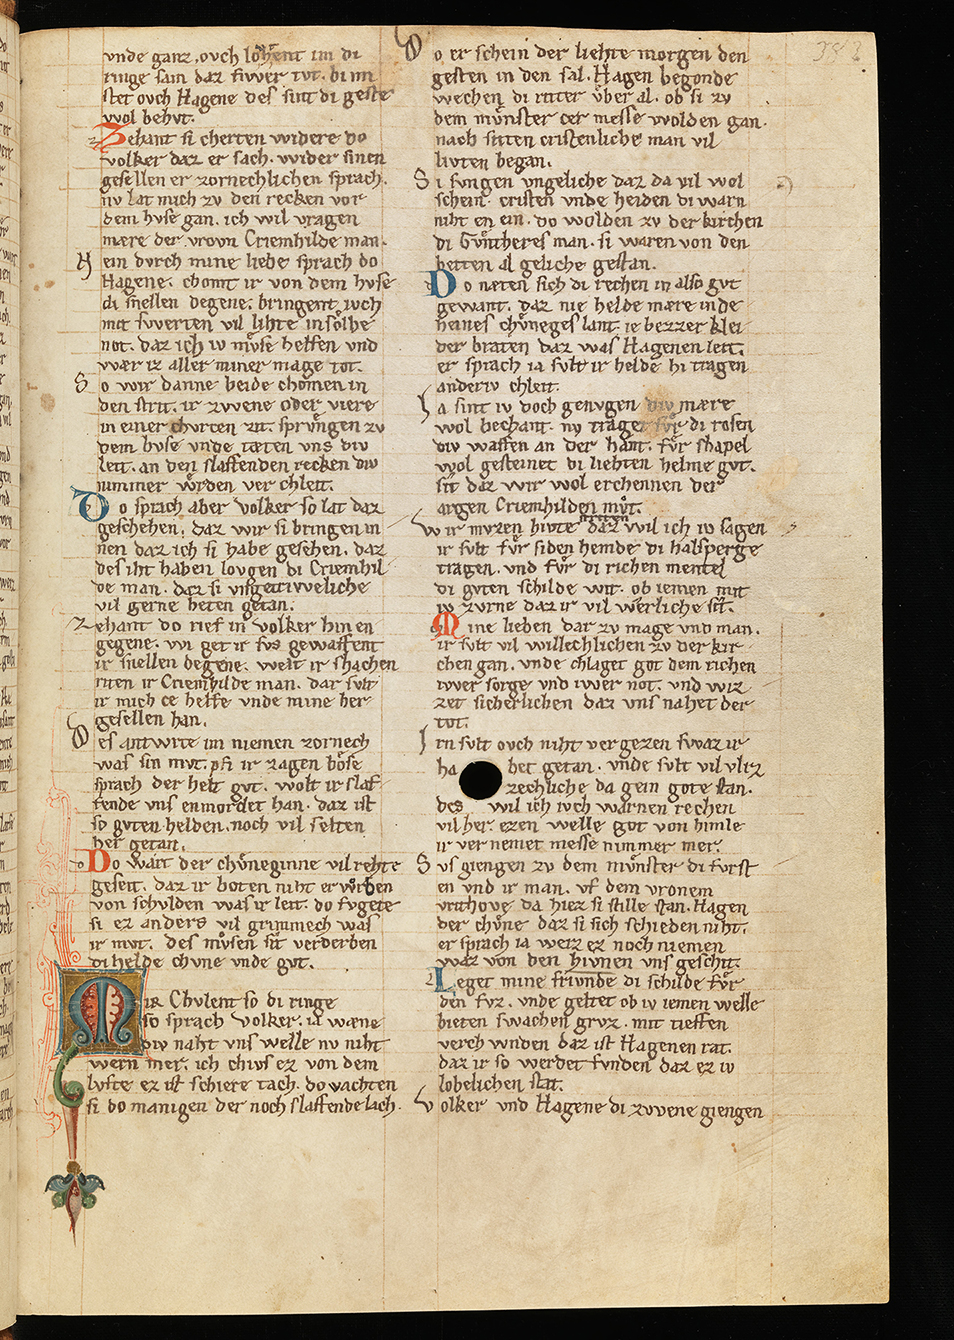 vnde ganz. ovch lohent im di
ringe sam daz fiwer tvt. bi im
stet ovch Hagene des sint di geste
wol behvt.
Zehant si cherten widere do
volker daz er sach. wider sinen
gesellen er zornechlichen sprach.
nv lat mich zv den recken vor
dem hvse gan. ich wil vragen
mære der vrovn Criemhilde man.
Nein dvrch mine liebe sprach do
Hagene. chomt ir von dem hvse
di snellen degene. bringent ivch
mit swerten vil lihte in sôlhe
not. daz ich iv mv̊se helfen vnd
wær iz aller miner mage tot.
So wir danne beide chomen in
den strit. ir zwene oder viere
in einer chvrten zit. sprvngen zv
dem hvse vnde tæten vns div
leit. an den slaffenden recken div
nimmer wrden ver chleit.
Do sprach aber volker so lat daz
geschehen. daz wir si bringen in
nen daz ich si habe gesehen. daz
des iht haben lovgen di Criemhil
de man. daz si vngetriweliche
vil gerne heten getan.
Zehant do rief in volker hin en
gegene. wi get ir svs gewaffent
ir snellen degene. welt ir shachen
riten ir Criemhilde man. dar svlt
ir mich ce helfe vnde mine her
gesellen han.
Des antwrte im niemen zornech
was sin mvt. pfi ir zagen bôse
sprach der helt gvt. wolt ir slaf
fende vns enmordet han. daz ist
so gvten helden. noch vil selten
her getan.
Do wart der chv̊neginne vil rehte
geseit. daz ir boten niht erwrben
von schvlden was ir leit. do fvgete
si ez anders vil grimmech was
ir mvt. des mv̊sen sit verderben
di helde chvne vnde gvt.
Mir Chvlent so di ringe
so sprach volker. ia wæne
div naht vns welle nv niht
wern mer. ich chivs ez von dem
lvfte ez ist schiere tach. do wachten
si do manigen der noch slaffende lach.
Do er schein der liehte morgen den
gesten in den sal. Hagen begonde
wechen di ritter v̊ber al. ob si zv
dem mv̊nster cer messe wolden gan.
nach sitten cristenliche man vil
livten began.
Si svngen vngeliche daz da vil wol
schein. cristen vnde heiden di warn
niht en ein. do wolden zv der kirchen
di Gv̊ntheres man. si waren von den
betten al geliche gestan.
Do næten sich di rechen in also gvt
gewant. daz nie helde mære in de
heines chv̊neges lant. ie bezzer klei
der braten daz was Hagenen leit.
er sprach ia svlt ir helde hi tragen
anderiv chleit.
Ia sint iv doch genvgen div mære
wol bechant. nv traget fv̊r di rosen
div waffen an der hant. fv̊r shapel
wol gesteinet di liehten helme gvt.
sit daz wir wol erchennen der
argen Criemhilden mv̊t.
Wir mvzen hivte daz wil ich iv sagen
ir svlt fv̊r siden hemde di halsperge
tragen. vnd fv̊r di richen mentel
di gvten schilde wit. ob iemen mit
iv zvrne daz ir vil werliche sit.
Mine lieben dar zv mage vnd man.
ir svlt vil willechlichen zv der kir
chen gan. vnde chlaget got dem richen
iwer sorge vnd iwer not. vnd wiz
zet sicherlichen daz vns nahet der
tot.
Irn svlt ovch niht vergezen swaz ir
ha bet getan. vnde svlt vil vliz
zechliche da gein gote stan.
des wil ich ivch warnen rechen
vil her. ezen welle got von himle
ir ver nemet messe nimmer mer.
Svs giengen zv dem mv̊nster di fvrst
en vnd ir man. vf dem vronem
vrithove da hiez si stille stan. Hagen
der chv̊ne daz si sich schieden niht.
er sprach ia weiz ez noch niemen
waz von den hivnen vns geschit.
Leget mine frivnde di schilde fv̊r
den fvz. vnde geltet ob iv iemen welle
bieten swachen grvz. mit tieffen
verch wnden daz ist Hagenen rat.
daz ir so werdet fvnden daz ez iv
lobelichen stat.
Volker vnd Hagene di zwene giengen